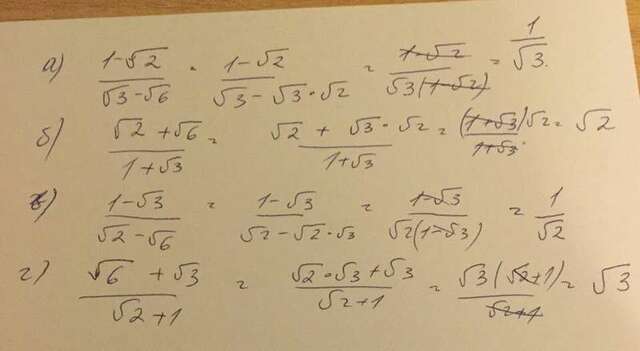 а) (1-√2)/(√3-√6) = (1-√2)/(√3-√3·√2) = (1-√2)/(√3(1-√2)) = 1/√3.
б) (√2+√6)/(1+√3) = (√2+√3·√2)/(1+√3) = ((1+√3)√2)/(1+√3) = √2
в) (1-√3)/(√2-√6) = (1-√3)/(√2-√2·√3) = (1-√3)/(√2(1-√3)) = 1/√2
г) (√6+√3)/(√2+1) = (√2·√3+√3)/(√2+1) = (√3(√2+1))/(√2+1) = √3